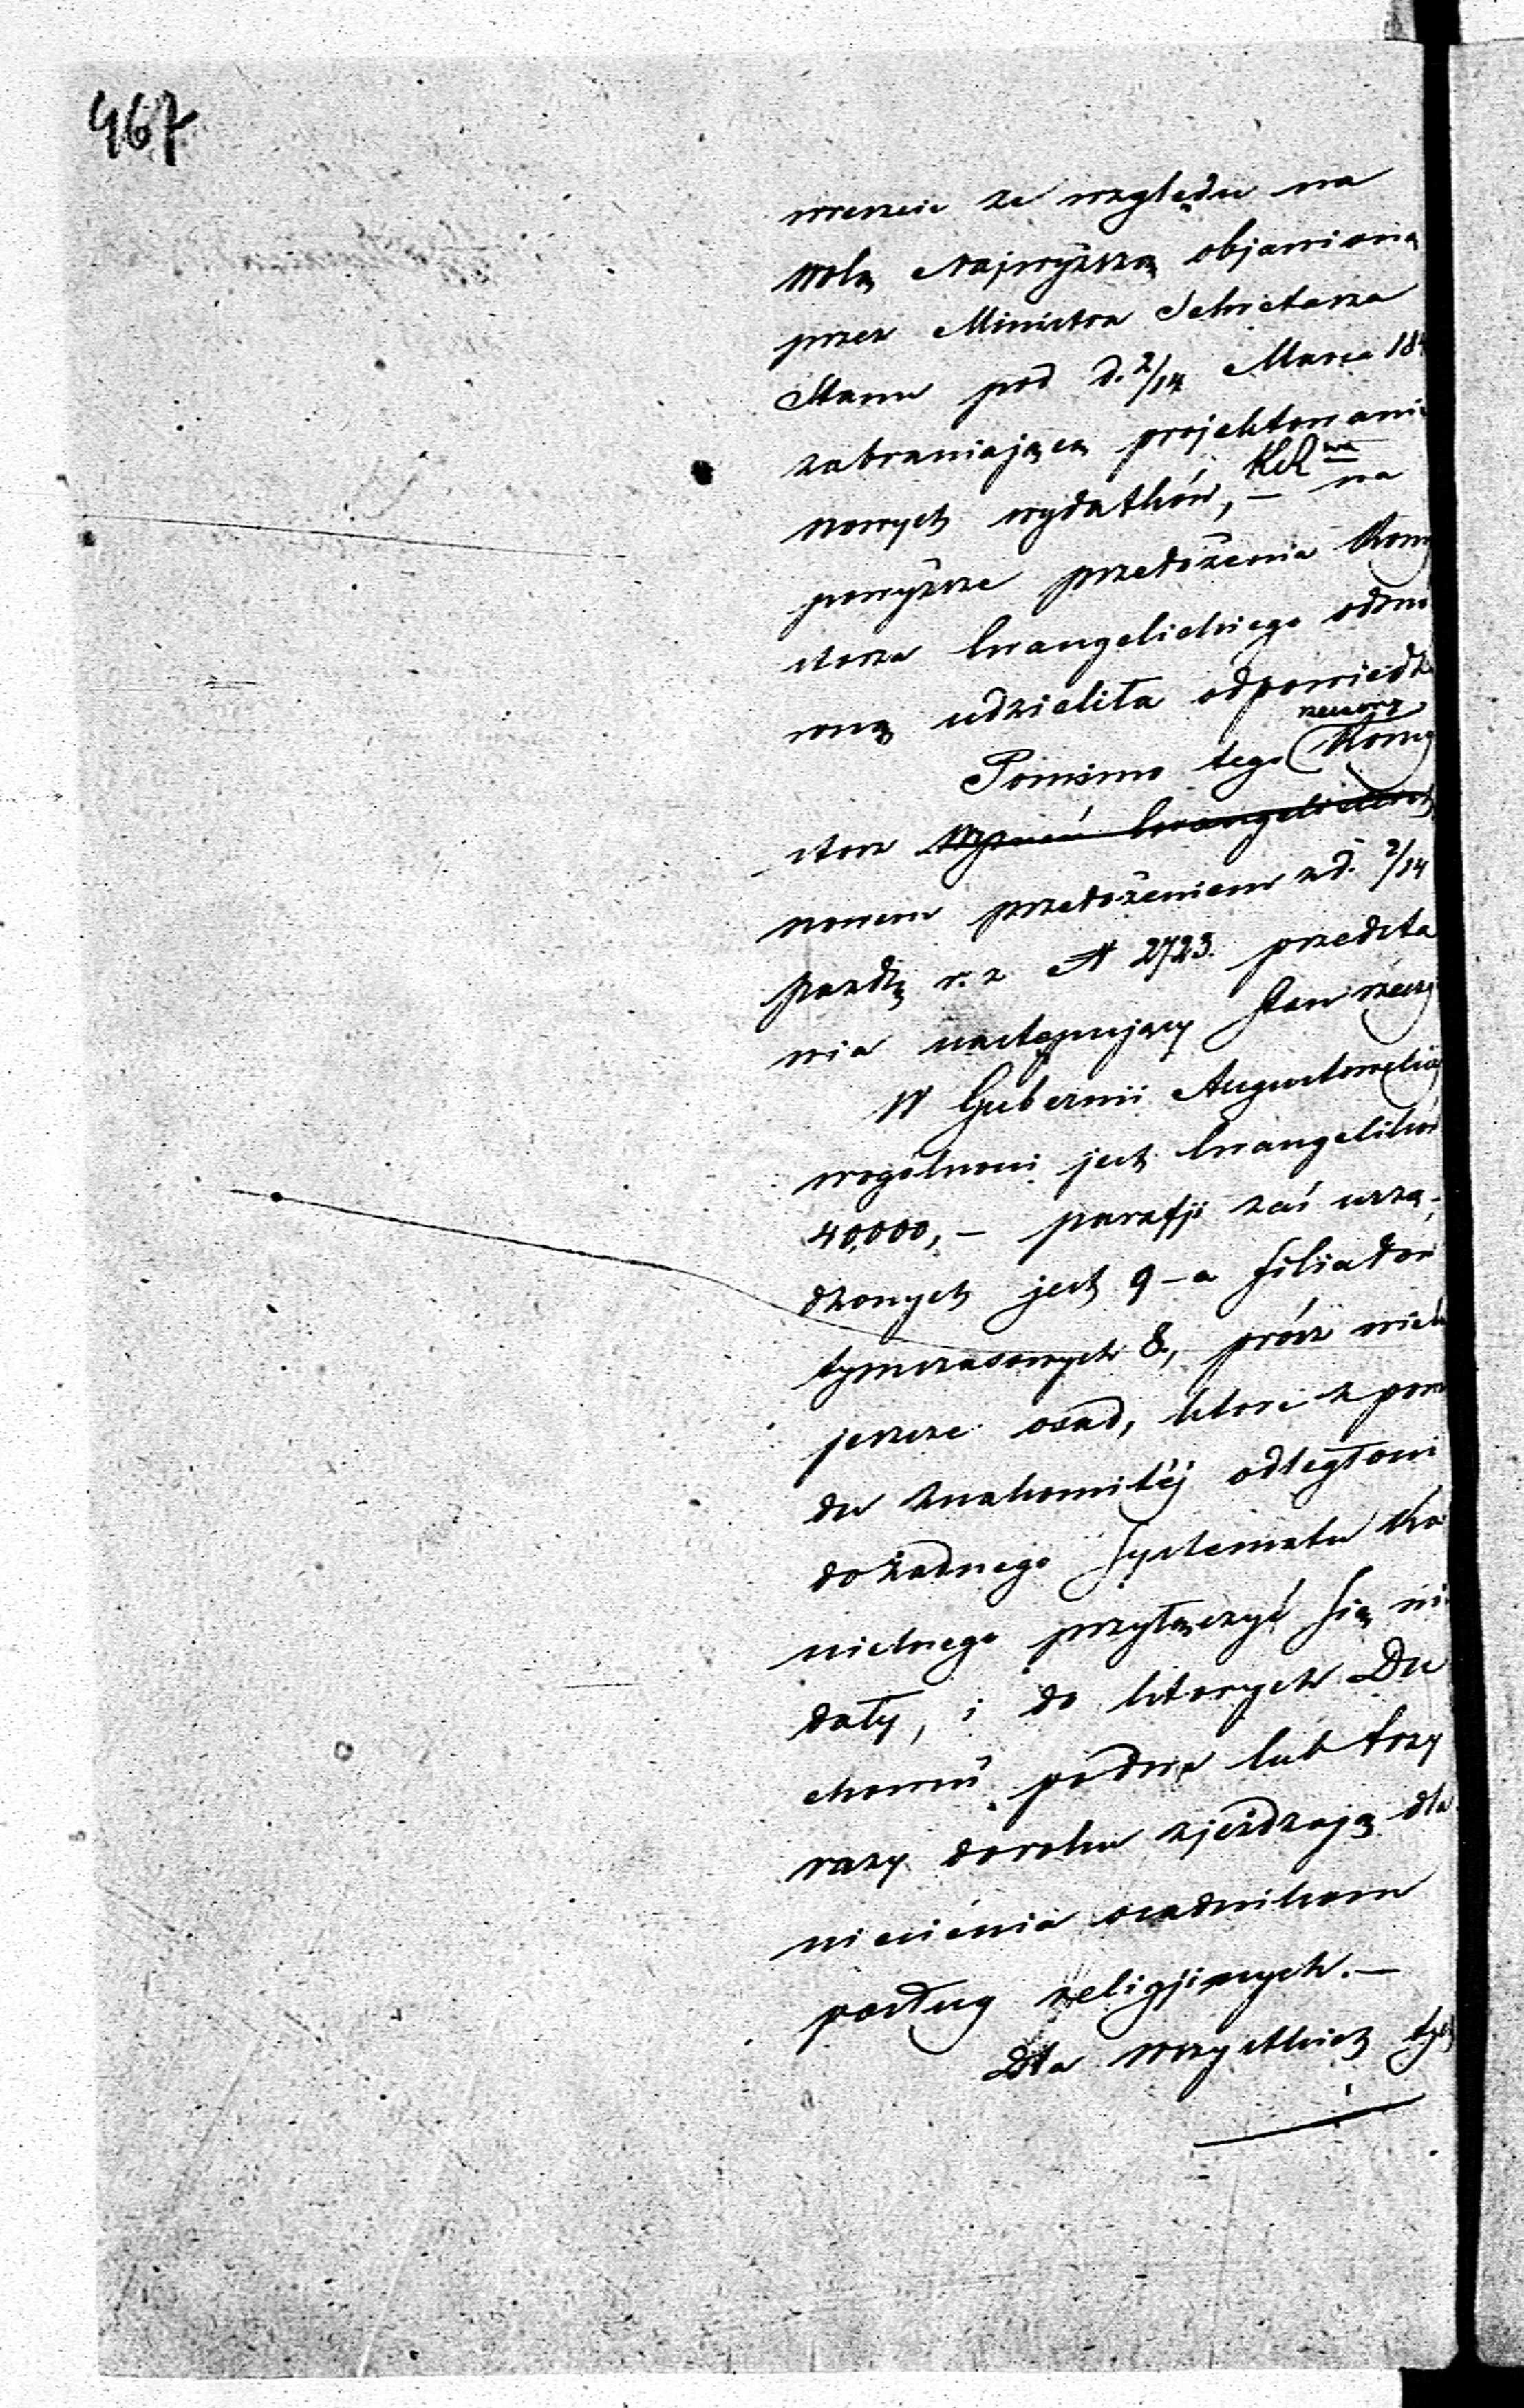 467
wreszcie ze względu na
Wolą Najwyższą objawioną
przez Ministra Sekretarza
Stanu pod d. 2/14 Marca 18
zabraniającą projektowani
nowych wydatków, — na
powyższe przedożenia Kons
storza Ewangelickiego odmo
wną udzieliła odpowiedź
Pomimo tego Konsy
storz Wyznań Ewangelickich
nowem przedożeniem z d. 2/14
Paźdz r. z N 2723. przedsta
wia następujący stan rzeczy
W Gubernii Augustowskiej
wogólności jest Ewangelików
40,000, — parafji zaś urzą-
dzonych jest 9 – a filiałów
tymczasowych 8, prócz wielu
jeszcze osad, które z powo
du znakomitéj odległości
do żadnego systematu Ko
ścielnego przyłączyć się nie
dały, i do których Du
chowni podwa lub trzy
razy doroku zjeżdżają dla
niesienia osadnikom
posług religijnych. —
Dla wszystkich tych